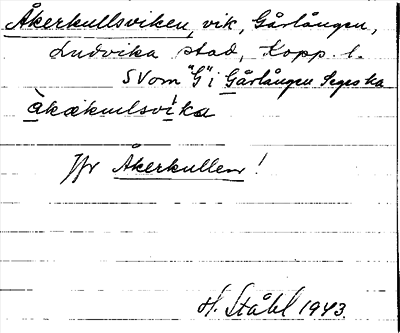 Åkerkullsviken, vik, Gårlången,
Ludvika stad, Kopp. l.
SV om "G" i Gårlången Segeska
åkækulsvika
Jfr Åkerkullen!
H. Ståhl 1943.